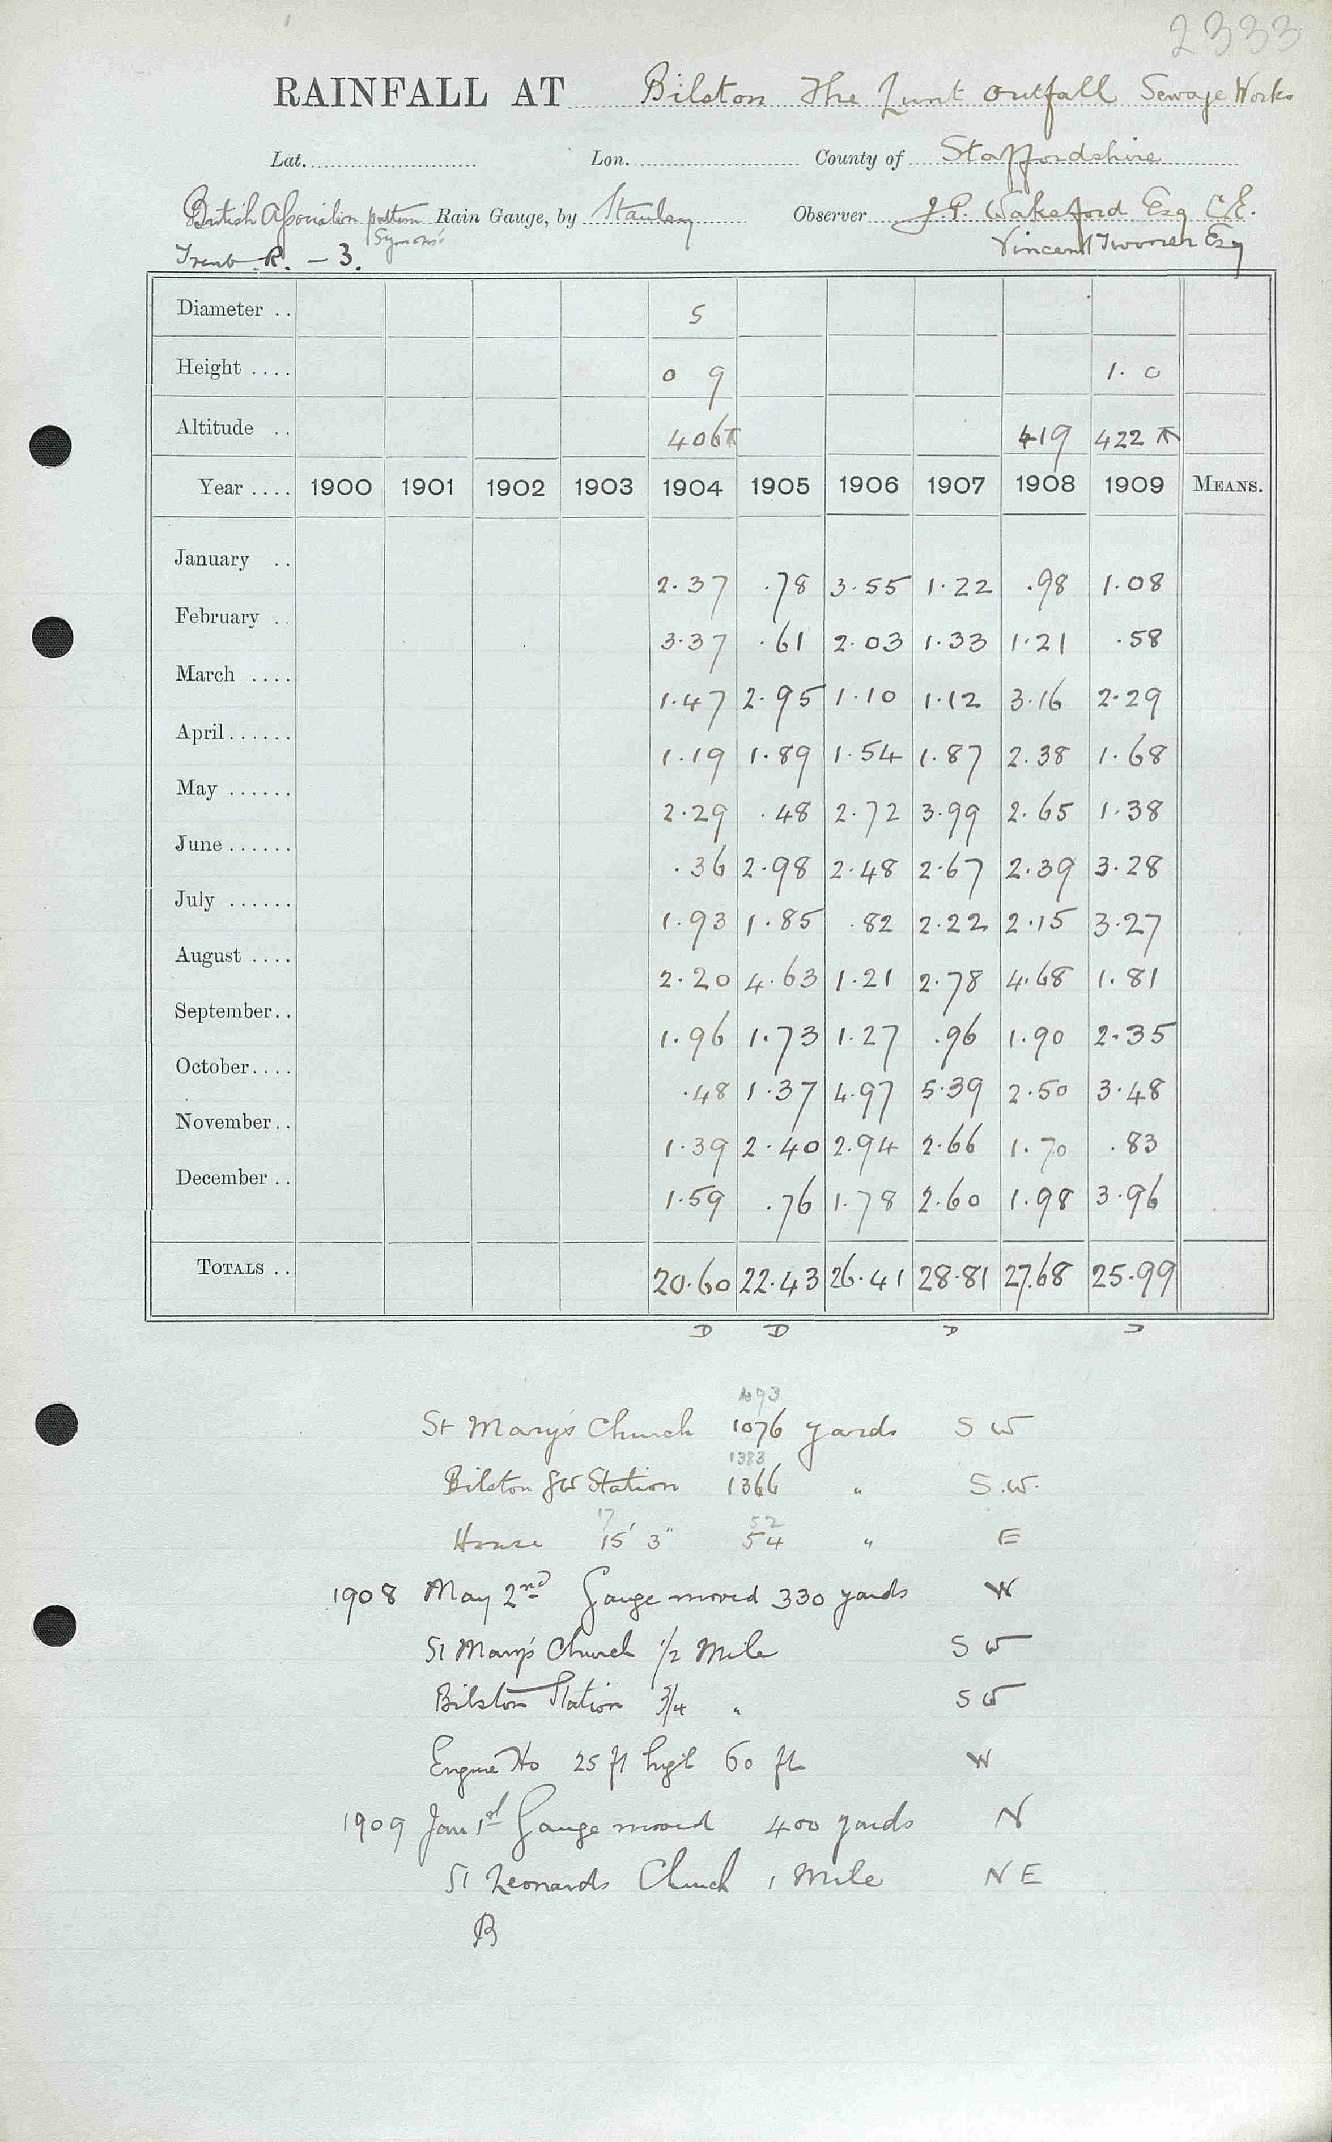 2333
RAINFALL AT Bilston The Lunt Outfall Sewage Works
Lat. Lon. County of Staffordshire
British Association pattern Rain Gauge, by Stanley Observer J.P. Wakeford Esq C.E.
Symons'
Trent R. - 3. Vincent Turner Esq
Diameter .. 5
Height .... 0 9 1. 0
Altitude .. 406 419 422
Year .... 1900 1901 1902 1903 1904 1905 1906 1907 1908 1909 MEANS.
January .. 2.37 .78 3.55 1.22 .98 1.08
February .. 3.37 .61 2.03 1.33 1.21 .58
March .... 1.47 2.95 1.10 1.12 3.16 2.29
April ...... 1.19 1.89 1.54 1.87 2.38 1.68
May ...... 2.29 .48 2.72 3.99 2.65 1.38
June ...... .36 2.98 2.48 2.67 2.39 3.28
July ...... 1.93 1.85 .82 2.22 2.15 3.27
August .... 2.20 4.63 1.21 2.78 4.68 1.81
September .. 1.96 1.73 1.27 .96 1.90 2.35
October .... .48 1.37 4.97 5.39 2.50 3.48
November .. 1.39 2.40 2.94 2.66 1.70 .83
December .. 1.59 .76 1.78 2.60 1.98 3.96
TOTALS .. 20.60 22.43 26.41 28.81 27.68 25.99
D D D D
1093
St Mary's Church 1076 yards S W
1383
Bilston GW Station 1366 " S.W.
17 52
House 15' 3" 54 " E
1908 May 2nd Gauge moved 330 yards W
St Mary's Church 1/2 Mile S W
Bilston Station 3/4 " S W
Engine Ho 25 ft high 60 ft W
1909 Jan 1st Gauge moved 400 yards N
St Leonards Church 1 Mile N E
B